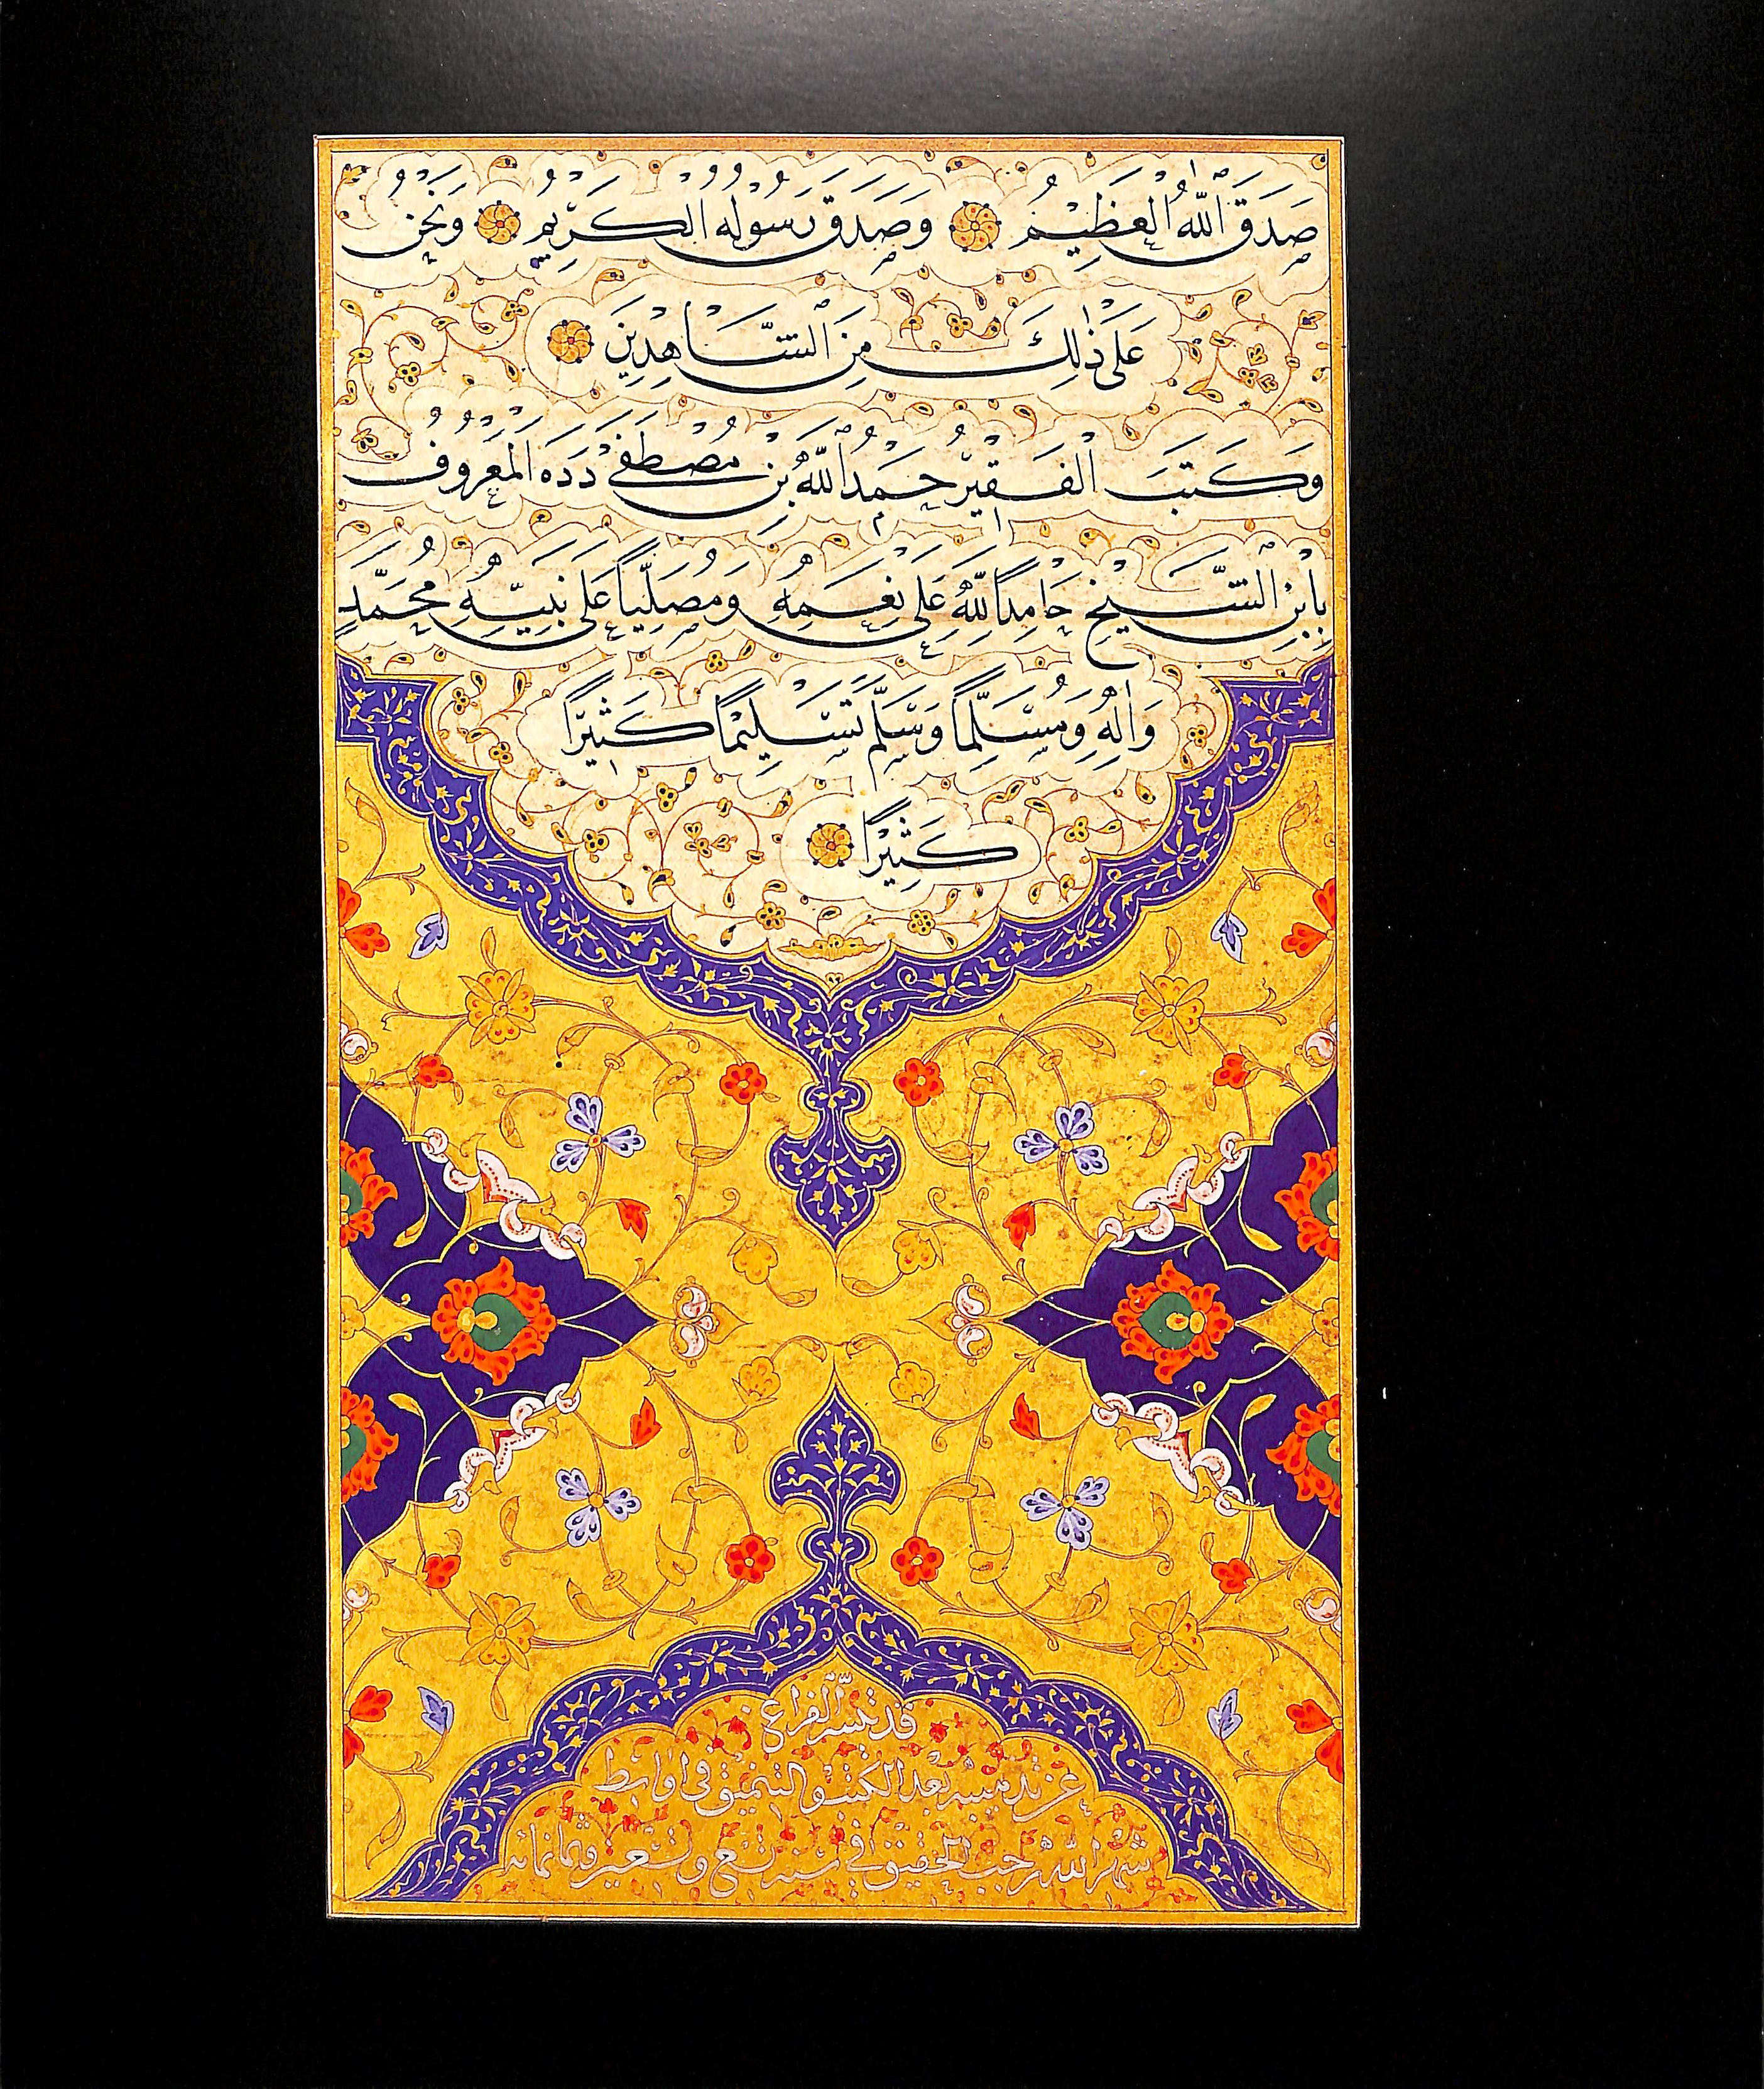 صَدَقَ اللّٰهُ الْعَظِيْمُ وَصَدَقَ رَسُولُهُ الْكَرِيْمُ وَنَحْنُ
عَلٰى ذٰلِكَ مِنَ الشَّاهِدِينَ
وَكَتَبَ الْفَقِيرُ حَمْدُ اللّٰهِ بْنِ مُصْطَفٰى دَدَه الْمَعْرُوفُ
بِابْنِ الشَّيْخِ حَامِدًا لِلّٰهِ عَلٰى نِعَمِهِ وَمُصَلِّيًا عَلٰى نَبِيِّهِ مُحَمَّدٍ
وَاٰلِهِ وَمُسَلِّمًا وَسَلَّمَ تَسْلِيْمًا كَثِيْرًا
كَثِيْرًا
قد تيسر الفراغ
عن تذهيبه بعد الكتب والتنميق في اواسط
شهر الله رجب الحقيق في سنة تسع وتسعين وثمانمائه